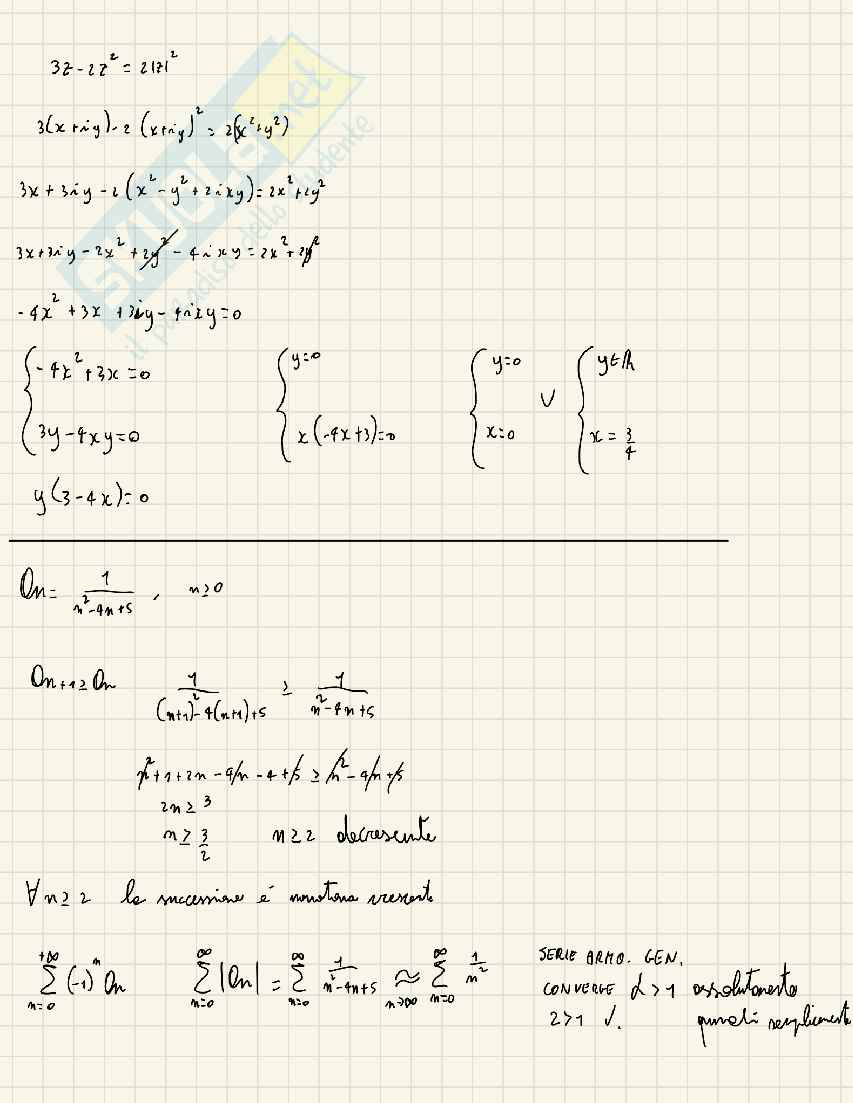 3z - 2z² = 2|z|²
3(x+iy) - 2(x+iy)² = 2(x²+y²)
3x + 3iy - 2(x² - y² + 2ixy) = 2x² + 2y²
3x + 3iy - 2x² + 2y² - 4ixy = 2x² + 2y²
-4x² + 3x + 3iy - 4ixy = 0
{ -4x² + 3x = 0 { y=0 { y=0 ∨ { y∈ℝ
3y - 4xy = 0 x(-4x+3)=0 x=0 x = 3/4
y(3-4x) = 0
an = 1/(n²-4n+5) , n≥0
an+1 ≥ an 1/((n+1)²-4(n+1)+5) ≥ 1/(n²-4n+5)
n² + 1 + 2n - 4n - 4 + 5 ≥ n² - 4n + 5
2n ≥ 3
n ≥ 3/2 n ≥ 2 decrescente
∀ n ≥ 2 la successione è monotona crescente
+∞ ∑ n=0 (-1)ⁿ an ∞ ∑ n=0 |an| = ∞ ∑ n=0 1/(n²-4n+5) ≈ n→∞ ∞ ∑ n=0 1/n²
SERIE ARMO. GEN.
CONVERGE α>1 assolutamente
2>1 ✓. quindi semplicemente
SKUOLA.net
il paradiso dello studente